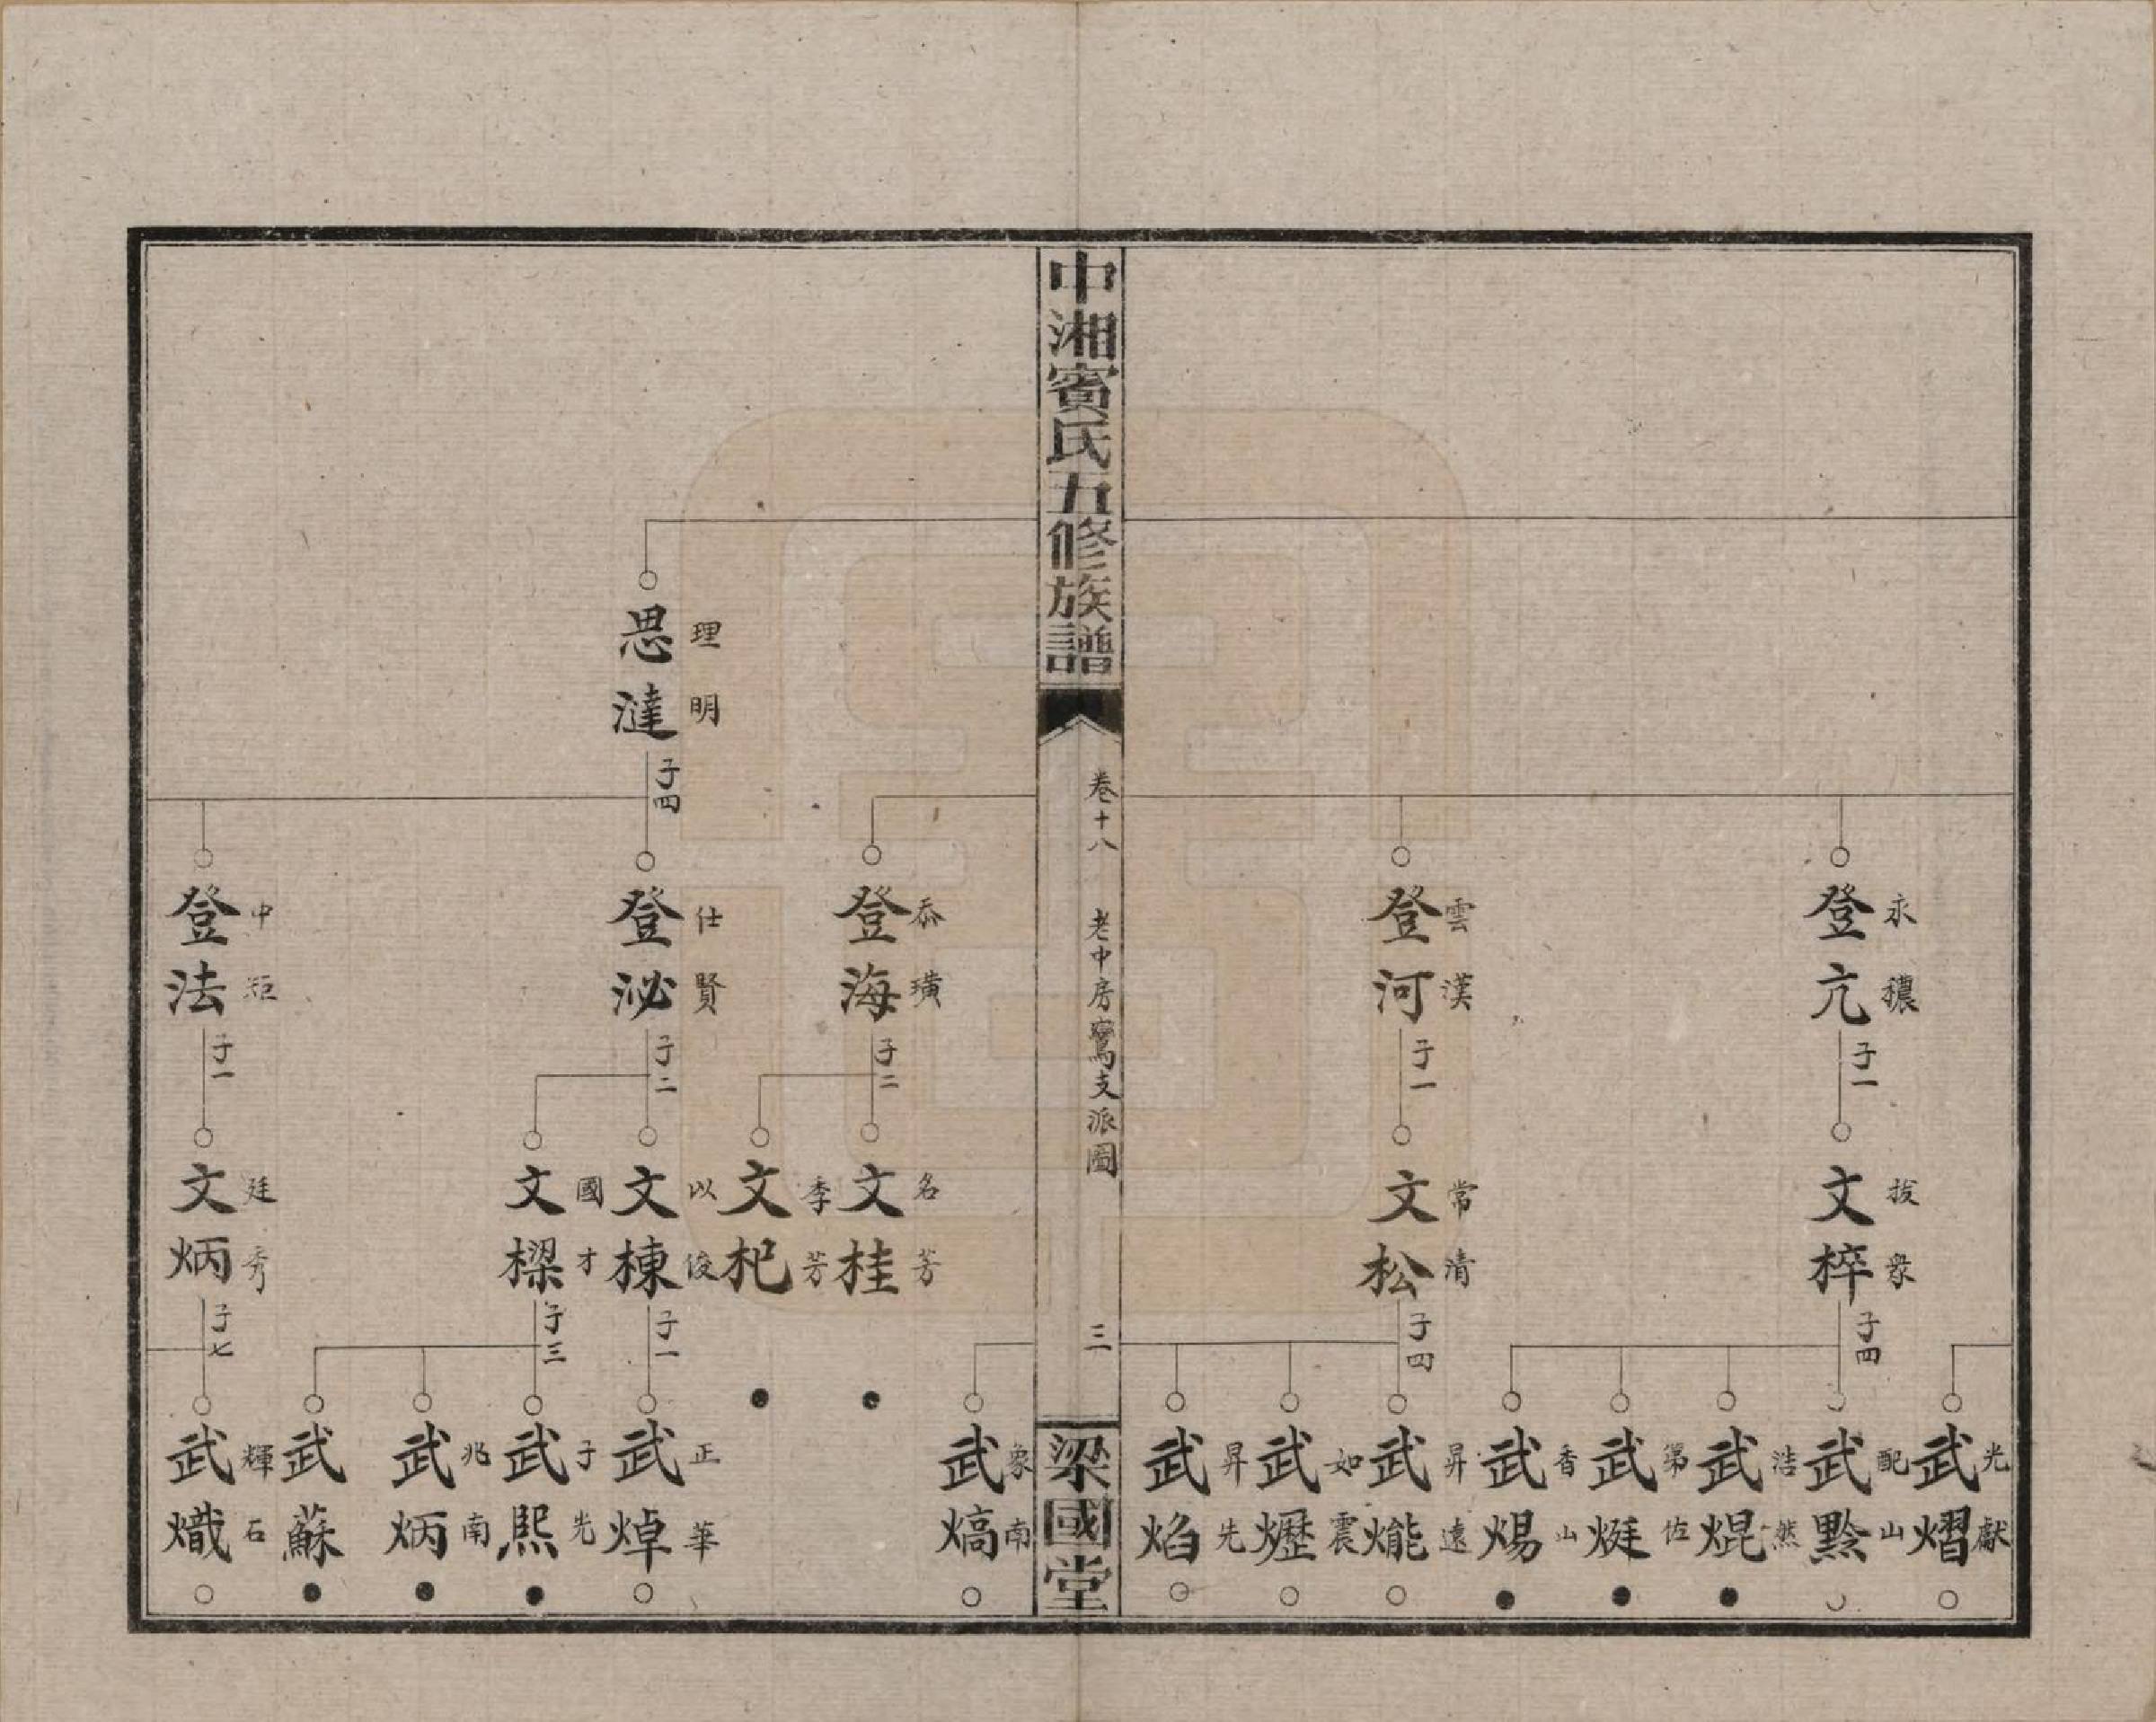 光獻
武熠
永穠
登亢
子一
拔衆
文榟
子四
配山
武黔
浩然
武焜
第佐
武烶
香山
武煬
雲漢
登河
子一
常清
文松
子四
昇遠
武熊
如震
武爏
昇先
武焰
中湘賓氏五修族譜
卷十八
老中房鸞支派圖
三
梁國堂
象南
武熇
恭璜
登海
子二
名芳
文桂
季芳
文杞
理明
思澾
子四
仕賢
登泌
子二
以俊
文棟
子一
正華
武焯
國才
文樑
子三
子光
武熙
兆南
武炳
武蘇
中矩
登法
子一
廷秀
文炳
子七
輝石
武熾